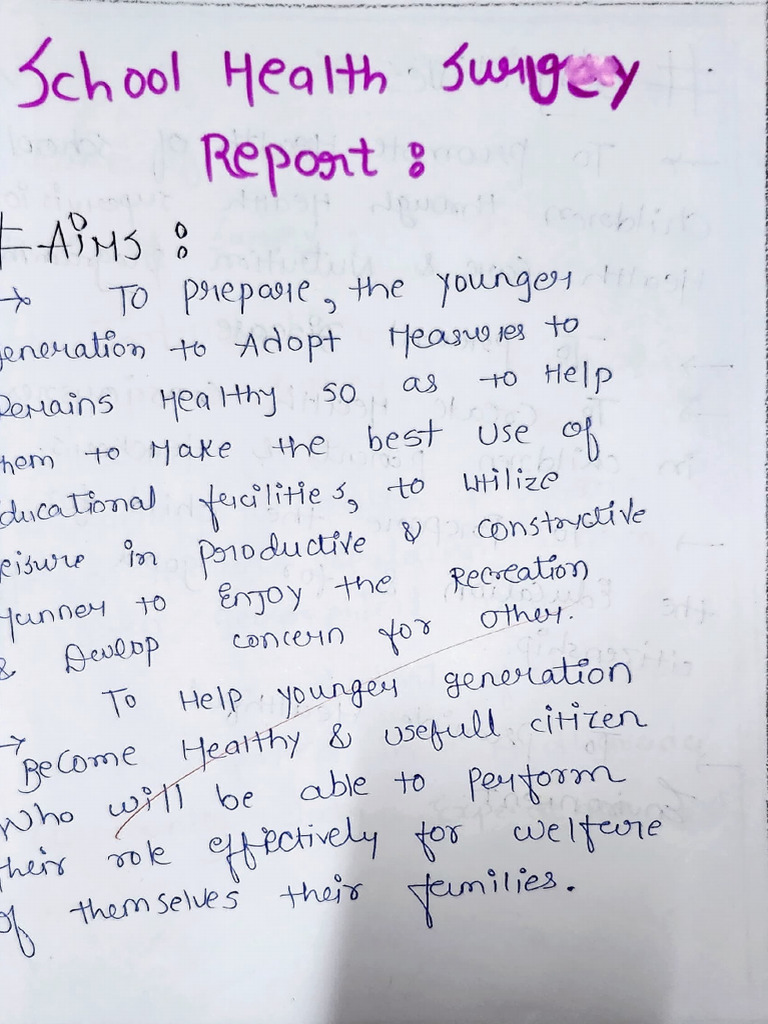 School Health Surgey
Report :
# Aims :
→ To prepare, the younger
generation to Adopt Measures to
Remains Healthy so as to Help
them to Make the best use of
educational fecilities, to utilize
leisure in productive & constructive
Manner to Enjoy the Recreation
& Develop concern for other.
To Help younger generation
→ Become Healthy & usefull citizen
who will be able to perform
their role effectively for welfare
of themselves their families.